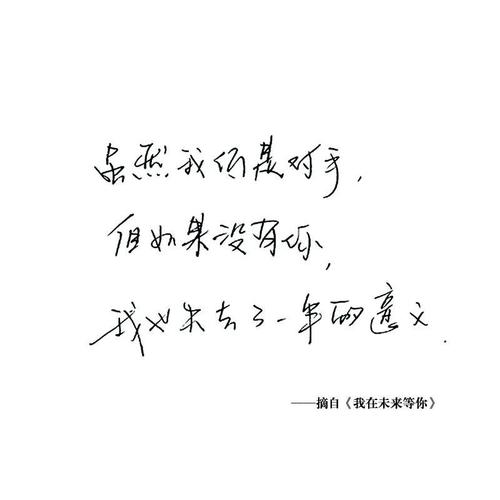 虽然我们是对手,
但如果没有你,
我也失去了一半的意义.
——摘自《我在未来等你》